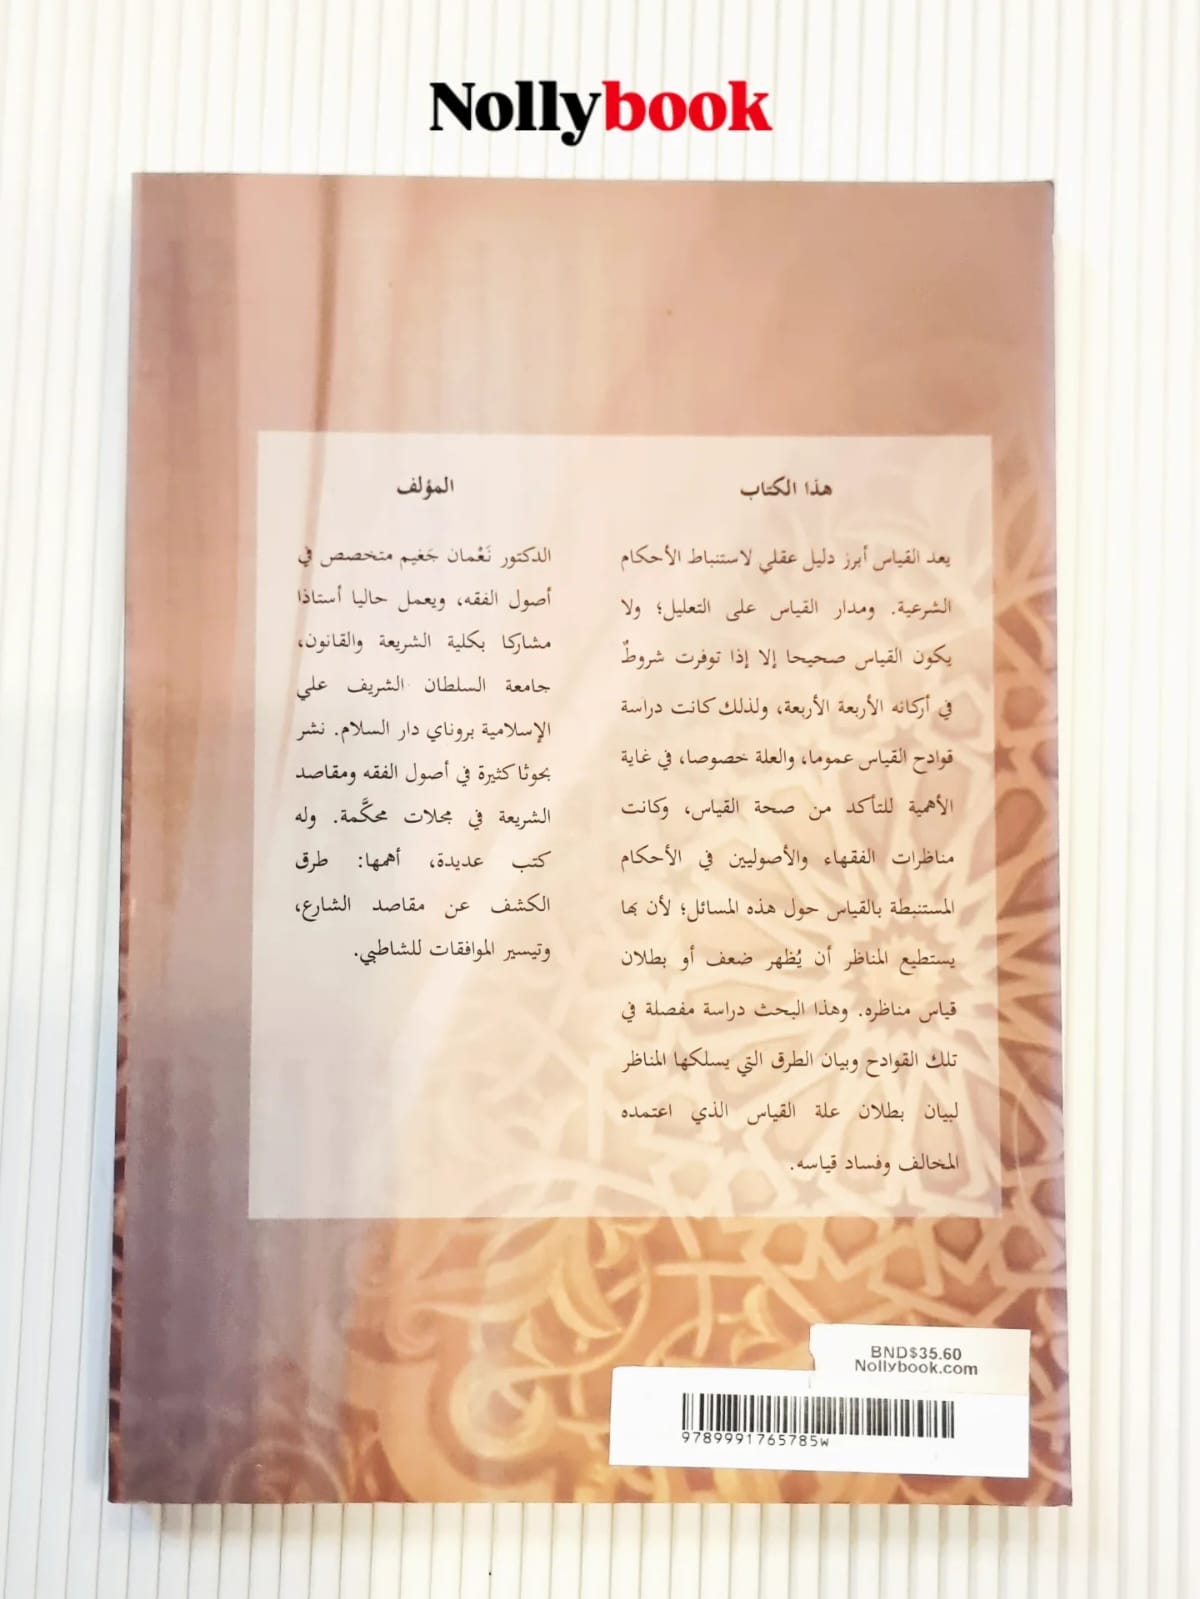 Nollybook
هذا الكتاب
يعد القياس أبرز دليل عقلي لاستنباط الأحكام
الشرعية. ومدار القياس على التعليل؛ ولا
يكون القياس صحيحا إلا إذا توفرت شروطٌ
في أركانه الأربعة الأربعة، ولذلك كانت دراسة
قوادح القياس عموما، والعلة خصوصا، في غاية
الأهمية للتأكد من صحة القياس، وكانت
مناظرات الفقهاء والأصوليين في الأحكام
المستنبطة بالقياس حول هذه المسائل؛ لأن بها
يستطيع المناظر أن يُظهر ضعف أو بطلان
قياس مناظره. وهذا البحث دراسة مفصلة في
تلك القوادح وبيان الطرق التي يسلكها المناظر
لبيان بطلان علة القياس الذي اعتمده
المخالف وفساد قياسه.
المؤلف
الدكتور نَعْمان جَغيم متخصص في
أصول الفقه، ويعمل حاليا أستاذا
مشاركا بكلية الشريعة والقانون،
جامعة السلطان الشريف علي
الإسلامية بروناي دار السلام. نشر
بحوثا كثيرة في أصول الفقه ومقاصد
الشريعة في مجلات محكَّمة. وله
كتب عديدة، أهمها: طرق
الكشف عن مقاصد الشارع،
وتيسير الموافقات للشاطبي.
BND$35.60
Nollybook.com
9789991765785W